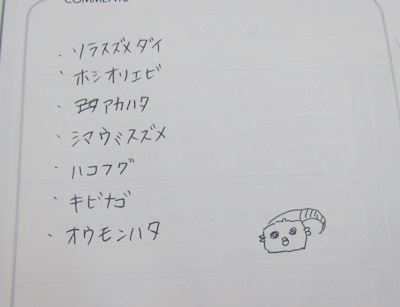 COMMENTS
・ソラスズメダイ
・ホシオリエビ
・アカハタ
・シマウミスズメ
・ハコフグ
・キビナゴ
・オウモンハタ